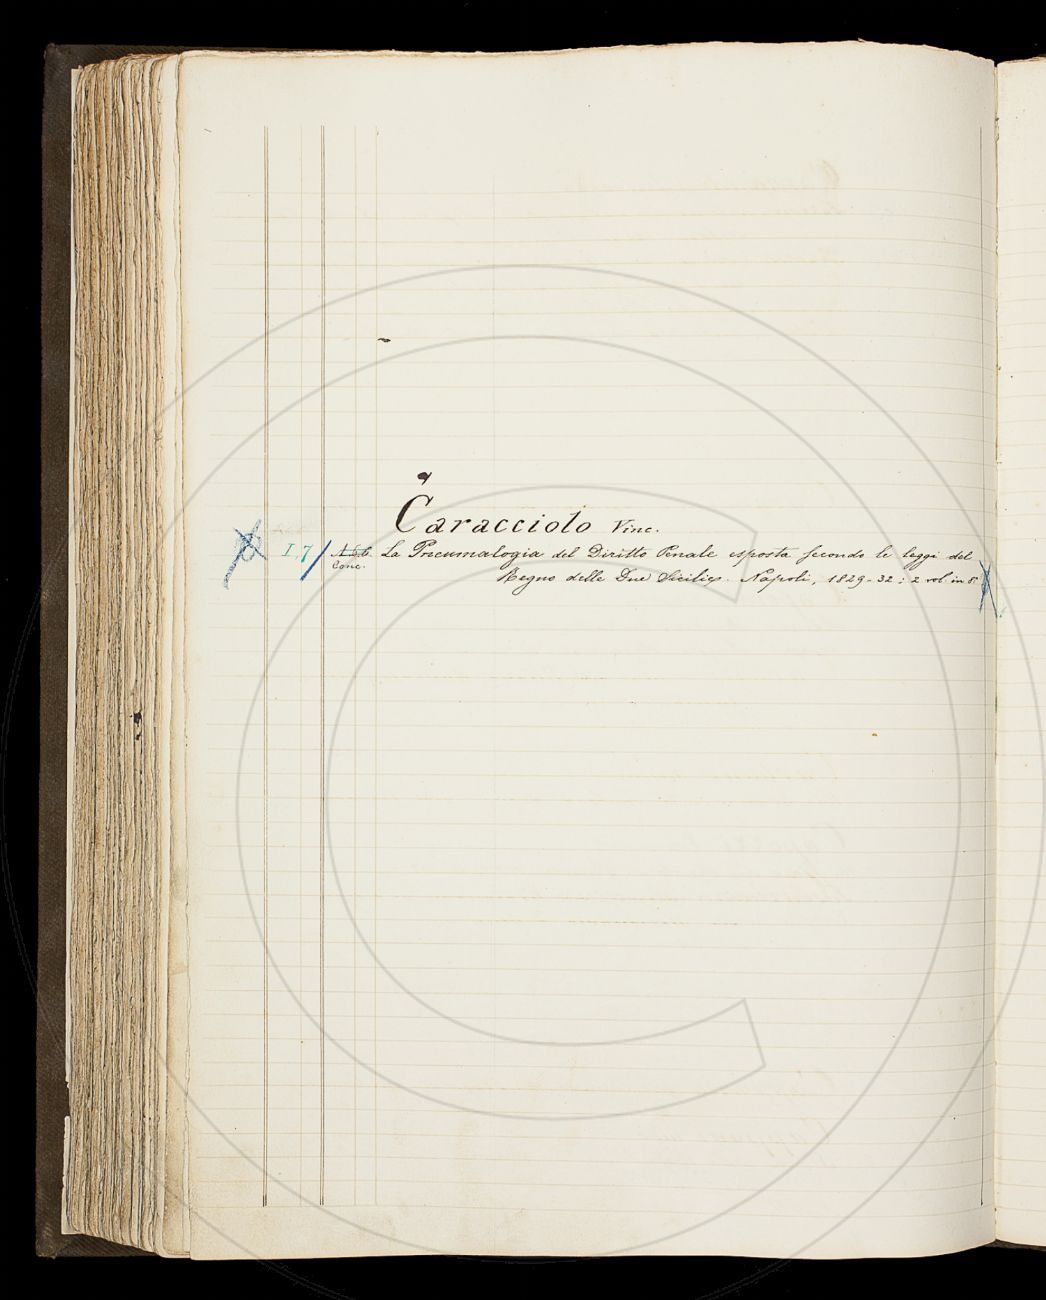 Caracciolo Vinc.
I, 7 A.6.6. La Pneumalogia del Diritto Penale esposta secondo le leggi del
Conc.
Regno delle Due Sicilie. Napoli, 1829-32: 2 vol. in 8°